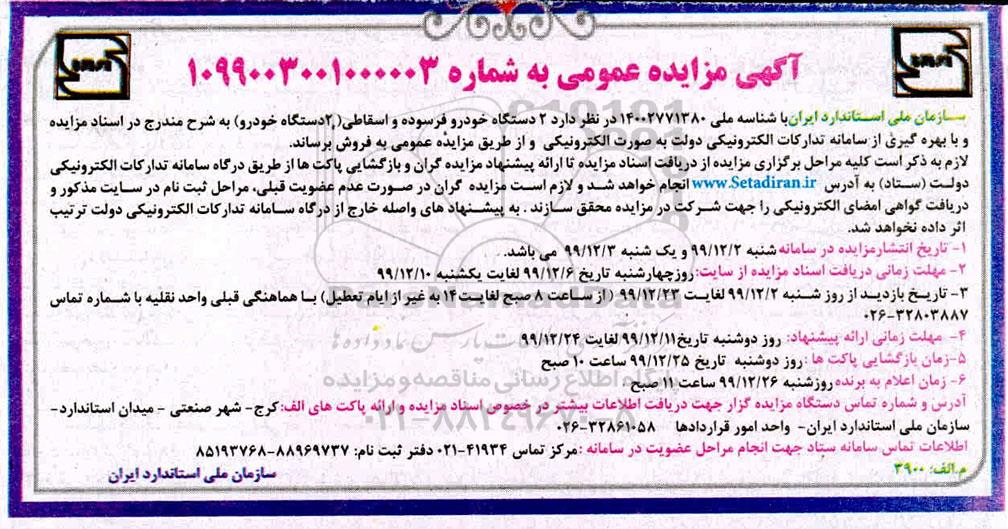 آگهی مزایده عمومی به شماره ۱۰۹۹۰۰۳۰۰۱۰۰۰۰۰۳
سازمان ملی استاندارد ایران با شناسه ملی ۱۴۰۰۲۷۷۱۳۸۰ در نظر دارد ۲ دستگاه خودرو فرسوده و اسقاطی(۲دستگاه خودرو) به شرح مندرج در اسناد مزایده
و با بهره گیری از سامانه تدارکات الکترونیکی دولت به صورت الکترونیکی و از طریق مزایده عمومی به فروش برساند.
لازم به ذکر است کلیه مراحل برگزاری مزایده از دریافت اسناد مزایده تا ارائه پیشنهاد مزایده گران و بازگشایی پاکت ها از طریق درگاه سامانه تدارکات الکترونیکی
دولت (ستاد) به آدرس www.Setadiran.ir انجام خواهد شد و لازم است مزایده گران در صورت عدم عضویت قبلی، مراحل ثبت نام در سایت مذکور و
دریافت گواهی امضای الکترونیکی را جهت شرکت در مزایده محقق سازند . به پیشنهاد های واصله خارج از درگاه سامانه تدارکات الکترونیکی دولت ترتیب
اثر داده نخواهد شد.
۱- تاریخ انتشار مزایده در سامانه شنبه ۹۹/۱۲/۲ و یک شنبه ۹۹/۱۲/۳ می باشد.
۲- مهلت زمانی دریافت اسناد مزایده از سایت: روز چهارشنبه تاریخ ۹۹/۱۲/۶ لغایت یکشنبه ۹۹/۱۲/۱۰
۳- تاریخ بازدید از روز شنبه ۹۹/۱۲/۲ لغایت ۹۹/۱۲/۲۳ ( از ساعت ۸ صبح لغایت ۱۴ به غیر از ایام تعطیل) با هماهنگی قبلی واحد نقلیه با شماره تماس
۰۲۶-۳۲۸۰۳۸۸۷
۴- مهلت زمانی ارائه پیشنهاد: روز دوشنبه تاریخ ۹۹/۱۲/۱۱ لغایت ۹۹/۱۲/۲۴
۵-زمان بازگشایی پاکت ها : روز دوشنبه تاریخ ۹۹/۱۲/۲۵ ساعت ۱۰ صبح
۶- زمان اعلام به برنده روزشنبه ۹۹/۱۲/۲۶ ساعت ۱۱ صبح
آدرس و شماره تماس دستگاه مزایده گزار جهت دریافت اطلاعات بیشتر در خصوص اسناد مزایده و ارائه پاکت های الف: کرج- شهر صنعتی - میدان استاندارد-
سازمان ملی استاندارد ایران- واحد امور قراردادها ۰۲۶-۳۲۸۶۱۰۵۸
اطلاعات تماس سامانه ستاد جهت انجام مراحل عضویت در سامانه : مرکز تماس ۴۱۹۳۴-۰۲۱ دفتر ثبت نام: ۸۸۹۶۹۷۳۷-۸۵۱۹۳۷۶۸
م.الف: ۳۹۰۰
سازمان ملی استاندارد ایران
پایگاه اطلاع رسانی مناقصه و مزایده